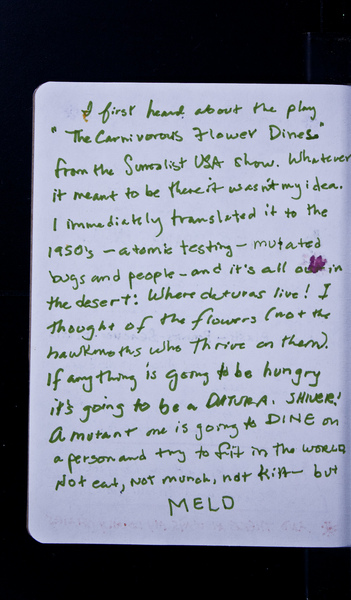 I first heard about the play
"The Carnivorous Flower Dines"
from the Surrealist USA show. Whatever
it meant to be there it wasn't my idea.
I immediately translated it to the
1950's – atomic testing – mutated
bugs and people – and it's all out in
the desert: Where daturas live! I
thought of the flowers (not the
hawkmoths who thrive on them).
If anything is going to be hungry
it's going to be a DATURA. SHIVER!
A mutant one is going to DINE on
a person and try to fit in the WORLD
Not eat, Not munch, not Kill – but
MELD